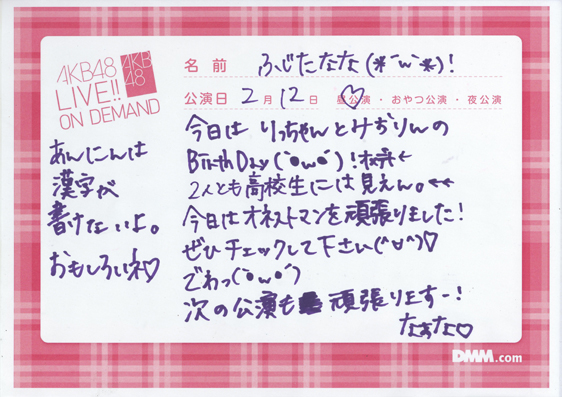 AKB48
LIVE!!
ON DEMAND
AKB
48
名前 ふじたなな(*´ω`*)!
公演日 2月12日 昼公演・おやつ公演・夜公演
今日は りっちゃんとみおりんの
BirthDay(`・ω・´)!
2人とも高校生には見えん。
今日はオネストマンを頑張りました!
ぜひチェックして下さい(^∪^)♡
でわっ(`・ω・´)
次の公演も 頑張りますー!
なぁな♡
あんにんは
漢字が
書けないよ。
おもしろいネ♡
DMM.com